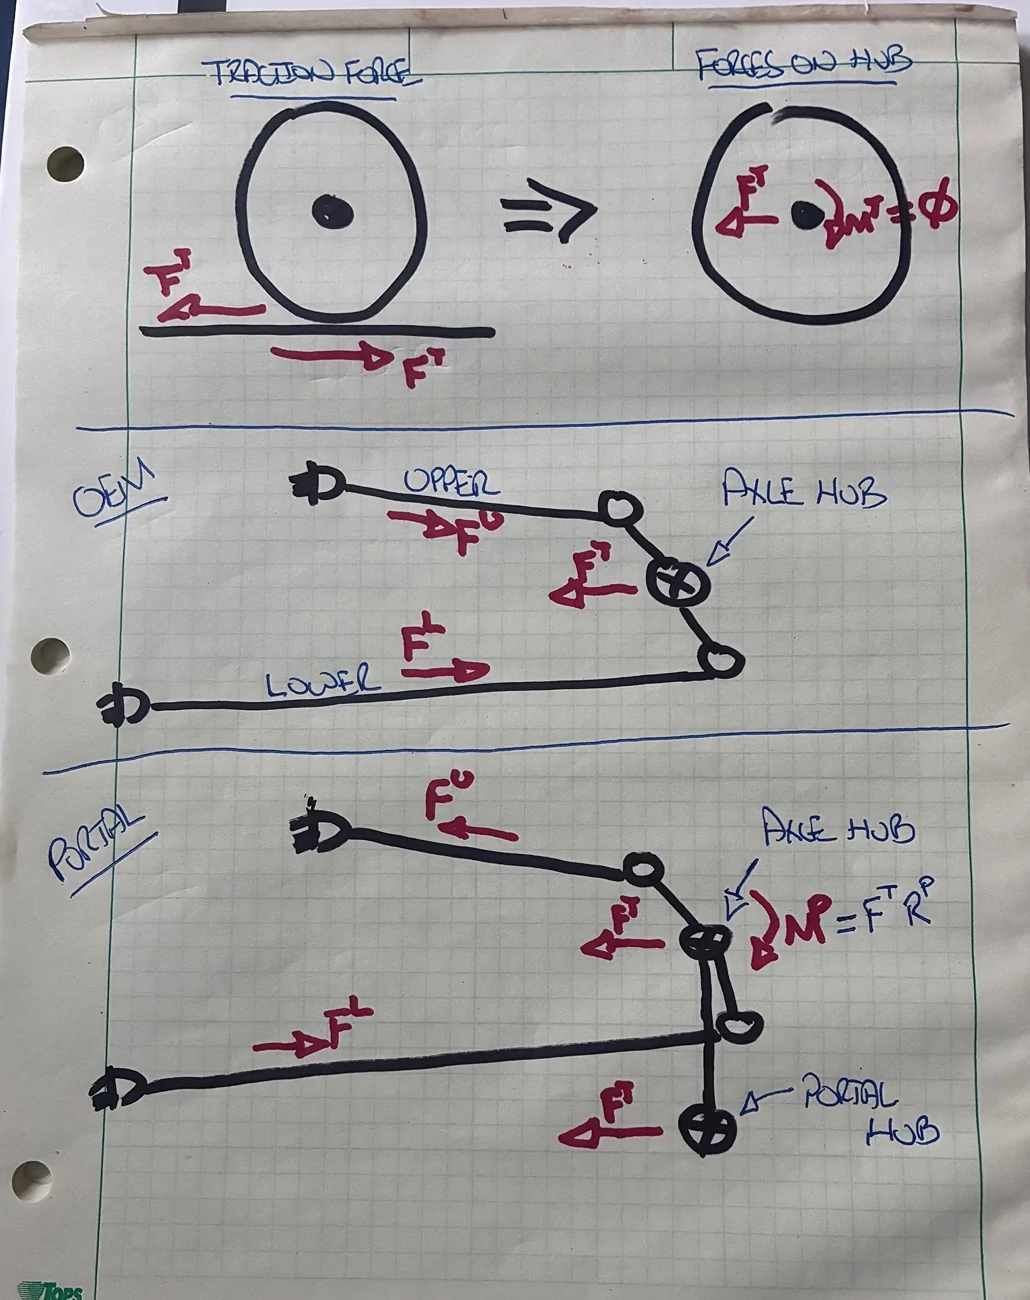 TRACTION FORCE
FORCES ON HUB
F^T
F^T
F^T
M^T = Ø
OEM
UPPER
F^U
AXLE HUB
F^T
F^L
LOWER
PORTAL
F^U
AXLE HUB
F^T
M^P = F^T R^P
F^L
F^T
PORTAL
HUB
TOPS